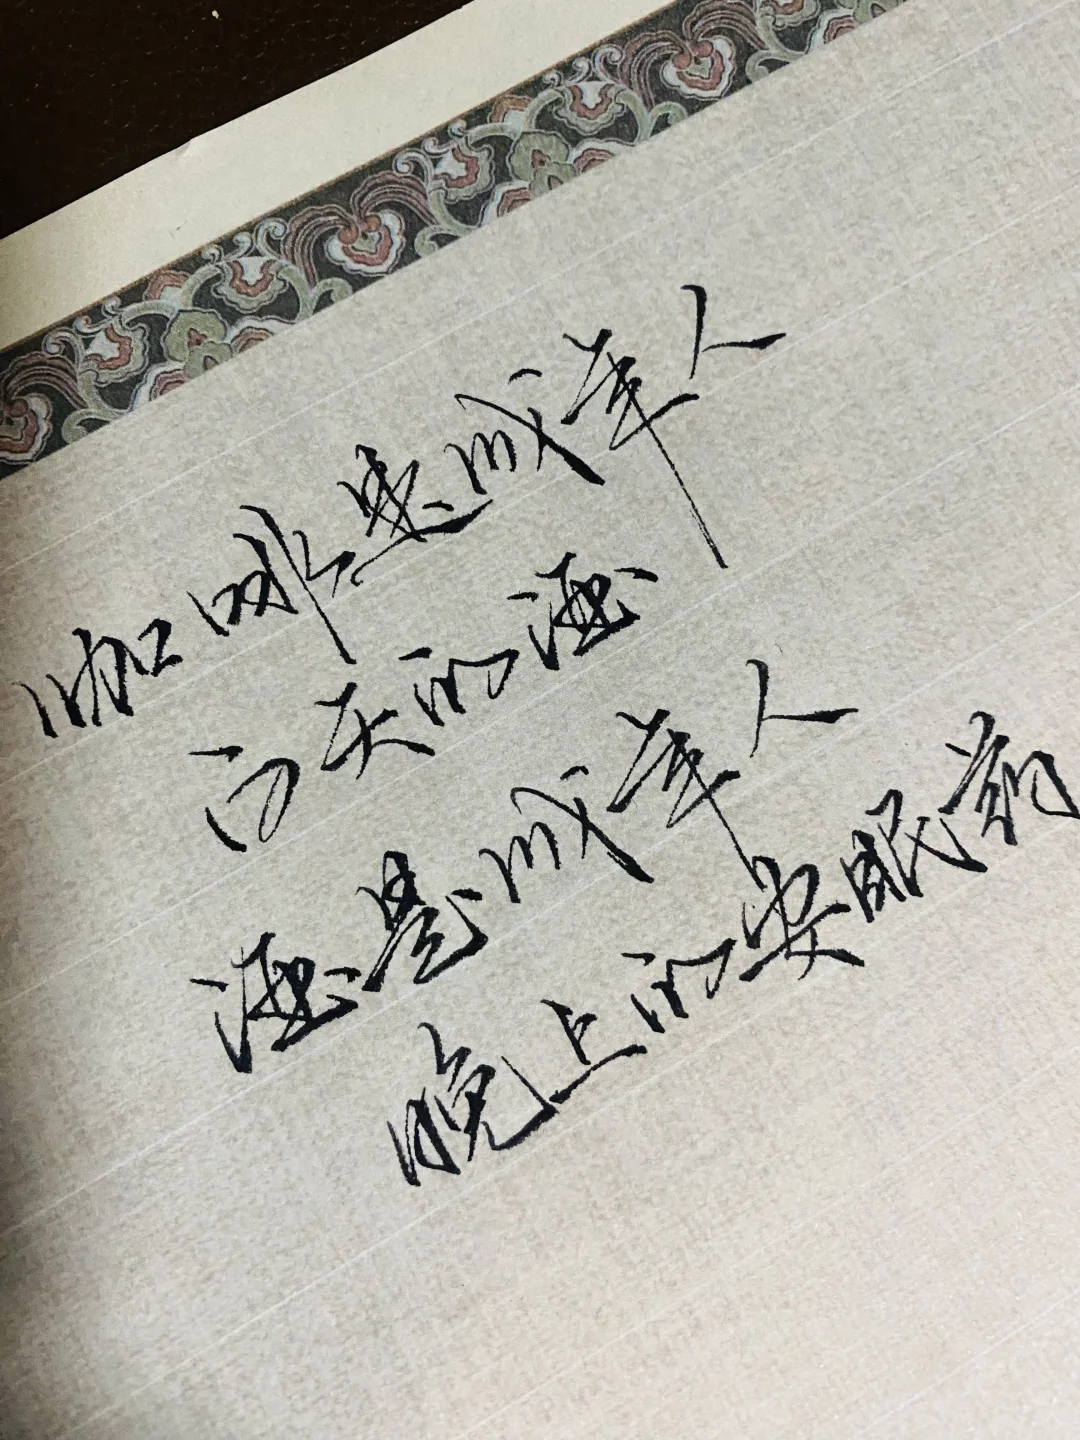 咖啡是成年人
白天的酒
酒是成年人
晚上的安眠药